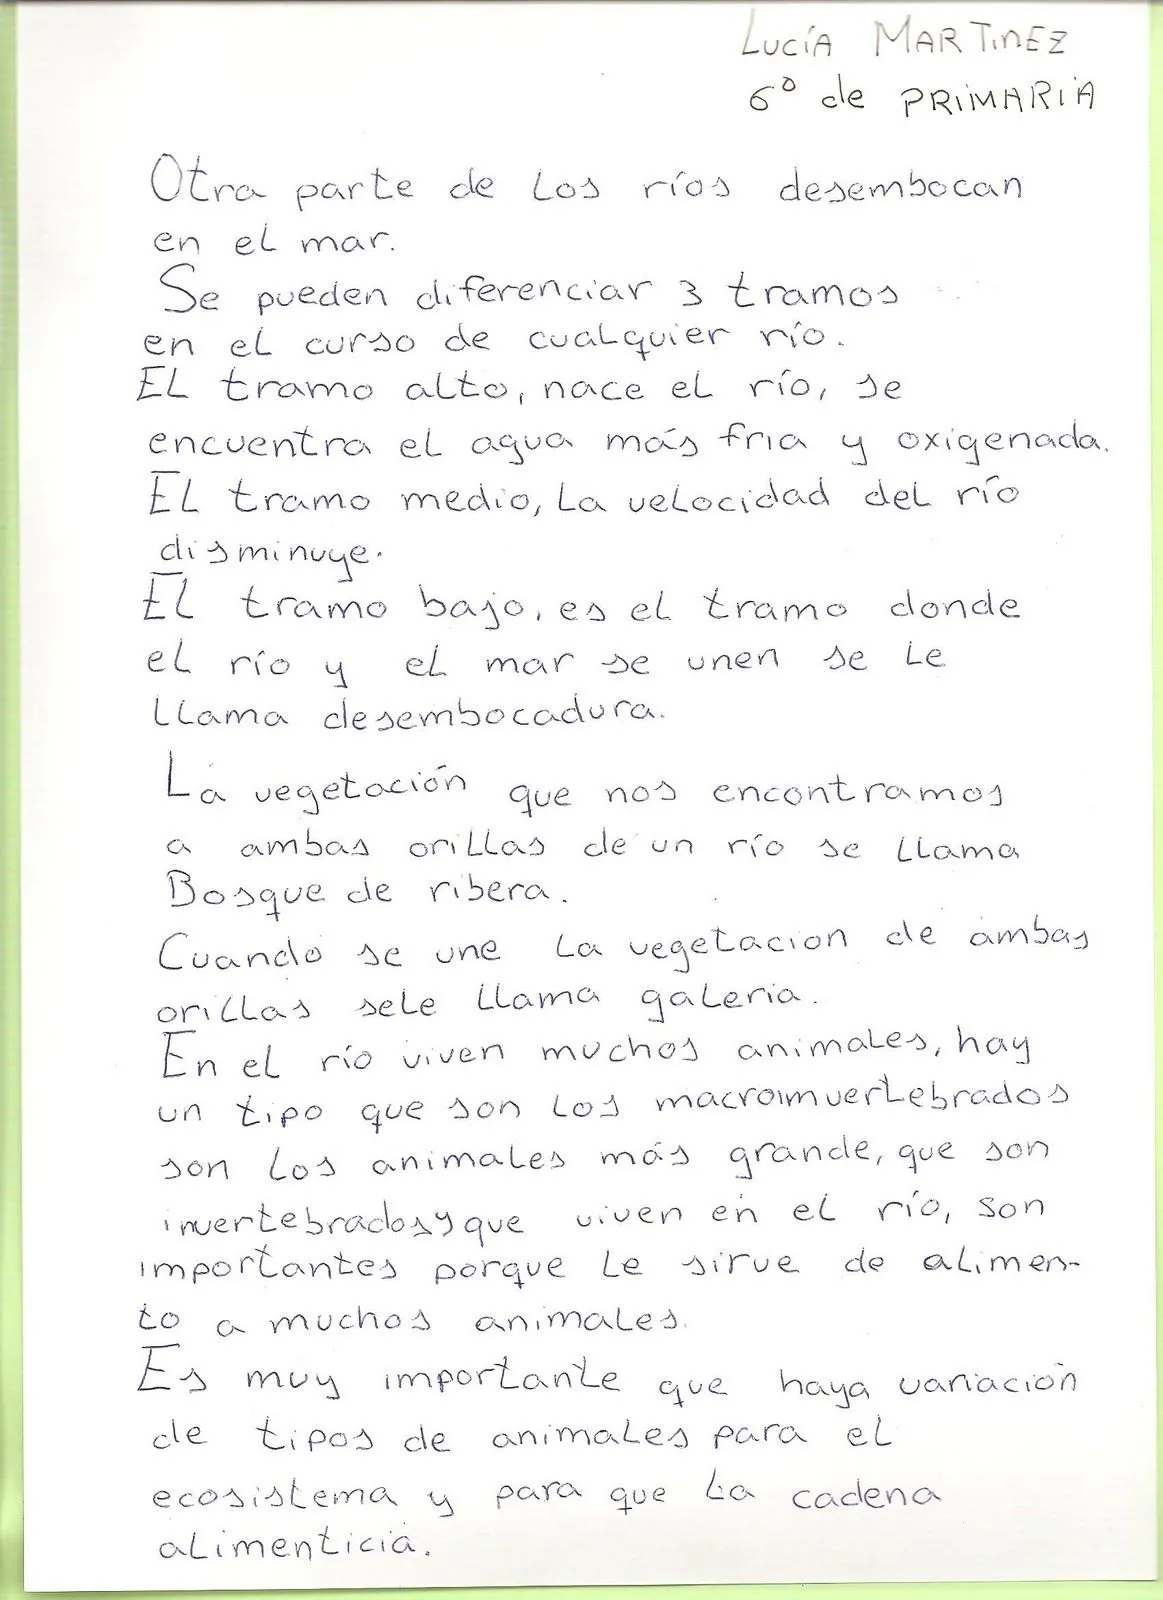 LUCÍA MARTINEZ
6º de PRIMARIA
Otra parte de los ríos desembocan
en el mar.
Se pueden diferenciar 3 tramos
en el curso de cualquier río.
El tramo alto, nace el río, se
encuentra el agua más fria y oxigenada.
El tramo medio, la velocidad del río
disminuye.
El tramo bajo, es el tramo donde
el río y el mar se unen se le
llama desembocadura.
La vegetación que nos encontramos
a ambas orillas de un río se llama
Bosque de ribera.
Cuando se une la vegetacion de ambas
orillas sele llama galeria.
En el río viven muchos animales, hay
un tipo que son los macroimvertebrados
son los animales más grande, que son
invertebrados y que viven en el río, son
importantes porque le sirve de alimen-
to a muchos animales.
Es muy importante que haya variación
de tipos de animales para el
ecosistema y para que la cadena
alimenticia.